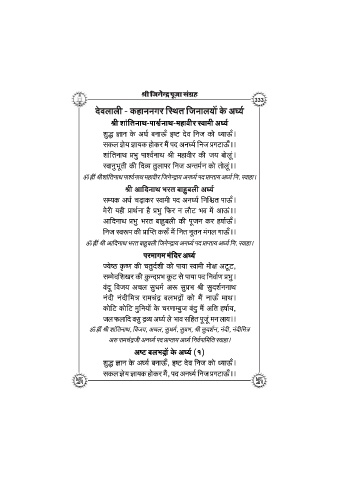 श्री जिनेन्द्र पूजा संग्रह
333
देवलाली - कहाननगर स्थित जिनालयों के अर्घ्य
श्री शांतिनाथ-पार्श्वनाथ-महावीर स्वामी अर्घ्य
शुद्ध ज्ञान के अर्घ बनाऊँ इष्ट देव निज को ध्याऊँ।
सकल ज्ञेय ज्ञायक होकर मैं पद अनर्घ्य निज प्रगटाऊँ।।
शांतिनाथ प्रभु पार्श्वनाथ श्री महावीर की जय बोलूं।
स्वानुभूती की दिव्य तुलापर निज अन्तर्मन को तोलूं।।
ॐ ह्रीं श्रीशांतिनाथ पार्श्वनाथ महावीर जिनेन्द्राय अनर्घ्य पद प्राप्ताय अर्घ्य नि. स्वाहा।
श्री आदिनाथ भरत बाहुबली अर्घ्य
सम्यक अर्घ चढ़ाकर स्वामी पद अनर्घ्य निश्चित पाऊँ।
मेरी यही प्रार्थना है प्रभु फिर न लौट भव में आऊं।।
आदिनाथ प्रभु भरत बाहुबली की पूजन कर हर्षाऊँ।
निज स्वरूप की प्राप्ति करूँ मैं नित नूतन मंगल गाऊँ।।
ॐ ह्रीं श्री आदिनाथ भरत बाहुबली जिनेन्द्राय अनर्घ्य पद प्राप्ताय अर्घ्य नि. स्वाहा।
परमागम मंदिर अर्घ्य
ज्येष्ठ कृष्ण की चतुर्दशी को पाया स्वामी मोक्ष अटूट,
सम्मेदशिखर की कुन्दप्रभ कूट से पाया पद निर्वाण प्रभु।
वंदू विजय अचल सुधर्म अरू सुप्रभ श्री सुदर्शननाथ
नंदी नंदीमित्र रामचंद्र बलभद्रों को मैं नाऊँ माथ।
कोटि कोटि मुनियों के चरणाम्बुज वंदु मैं अति हर्षाय,
जल फलादि वसु द्रव्य अर्घ्य ले भाव सहित पूजूं मन लाय।।
ॐ ह्रीं श्री शांतिनाथ, विजय, अचल, सुधर्म, सुप्रभ, श्री सुदर्शन, नंदी, नंदीमित्र
अरु रामचंद्रजी अनर्घ्य पद प्राप्ताय अर्घ्य निर्वपामिति स्वाहा।
अष्ट बलभद्रों के अर्घ्य (१)
शुद्ध ज्ञान के अर्घ्य बनाऊँ, इष्ट देव निज को ध्याऊँ।
सकल ज्ञेय ज्ञायक होकर मैं, पद अनर्घ्य निज प्रगटाऊँ।।